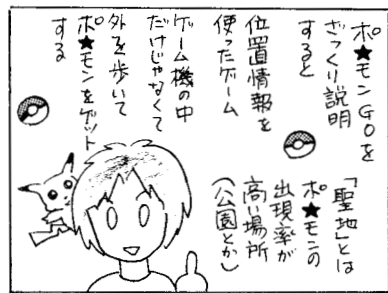 ポ★モンGOを
ざっくり説明
すると
位置情報を
使ったゲーム
ゲーム機の中
だけじゃなくて
外を歩いて
ポ★モンをゲット
する
「聖地」とは
ポ★モンの
出現率が
高い場所
(公園とか)